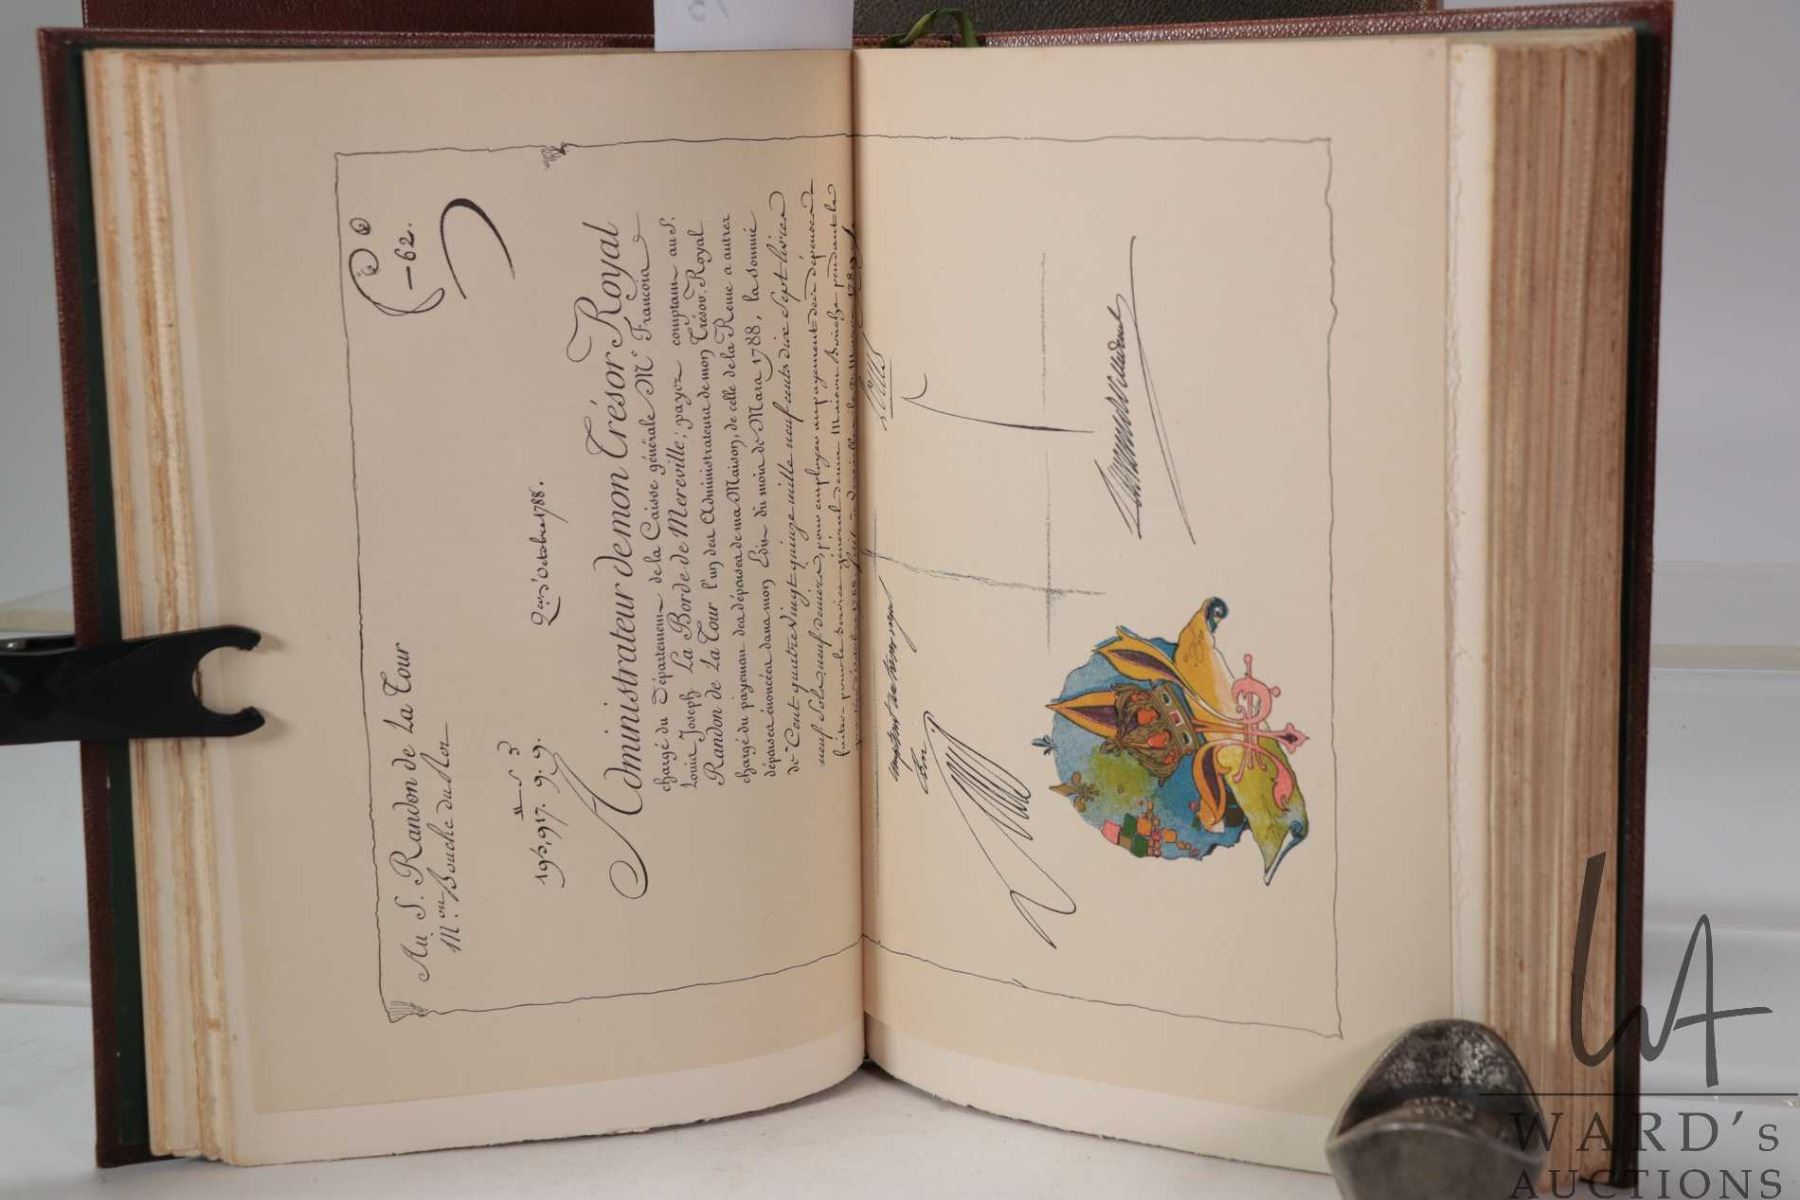 Au S. Randon de La Tour
M.on Bouche du Roi
62.
2 er. d'Octobre 1788.
195,917. 9. 9.
Administrateur de mon Trésor Royal
chargé du Département de la Caisse générale Me. Francois
Louis Joseph La Borde de Mereville; payez comptant au S.
Randon de La Tour l'un des Administrateurs de mon Trésor Royal
chargé du payement des dépenses de ma Maison, de celle de la Reine & autres
dépenses énoncées dans mon Edit du mois de Mars 1788, la Somme
de Cent quatre Vingt quinze mille neuf cents dix Sept livres
neuf Sols neuf deniers, pour employer au payement des dépenses
faites pour le Service général de ma Maison Bouche pendant le
Bon
WARD's
AUCTIONS